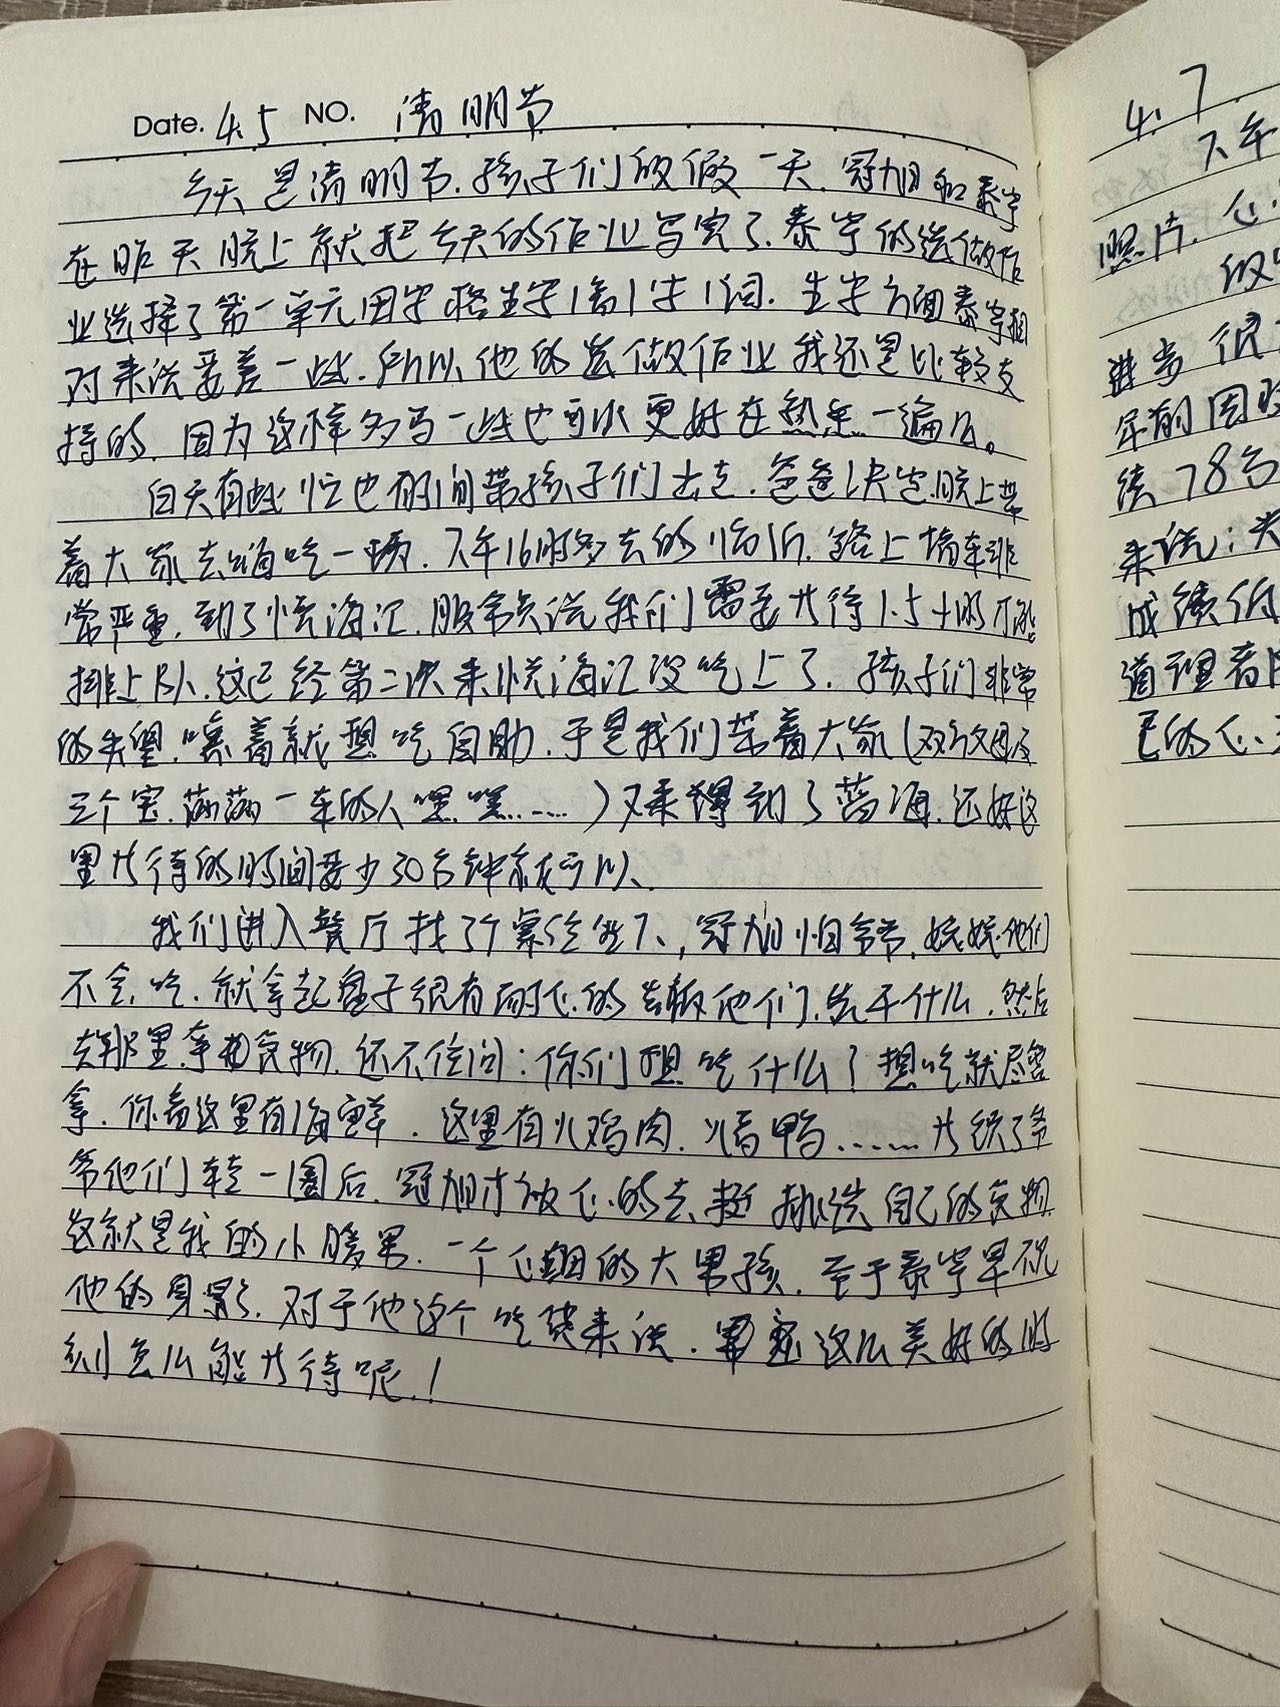 Date. 4.5 NO. 清明节
今天是清明节.孩子们放假一天.冠旭和泰宇
在昨天晚上就把今天的作业写完了.泰宇的选做作
业选择了第一单元田字格生字1需1字1词.生字方面泰宇相
对来说要差一些.所以他的选做作业我还是比较支
持的.因为这样多写一些也可以更好在熟悉一遍么。
白天有些忙也有时间带孩子们出走.爸爸决定晚上带
着大家去海吃一顿.下午16时多去的临沂.路上堵车非
常严重.到了悦海汇.服务员说我们需要廾待1.5小时才能
排上队.这已经第二次来悦海汇没吃上了.孩子们非常
的失望.嚷着就想吃自助.于是我们带着大家(双方父母及
三个宝.满满一车的人嘿嘿......)又来得到了蓝海.还好这
里廾待的时间要少30分钟就可以.
我们进入餐厅找了个靠位坐下.,冠旭怕爷爷.奶奶他们
不会吃.就拿起盘子很有耐心的告诉他们.先干什么.然后
去那里拿食物.还不住问:你们想吃什么?想吃就尽管
拿.你看这里有海鲜.这里有火鸡肉.烤鸭......廾领了爷
爷他们转一圈后.冠旭才放心的去挑选自己的食物
这就是我的小暖男.一个心细的大男孩.至于泰宇早不见
他的身影.对于他这个吃货来说.这么美好的时
刻怎么能廾待呢.!
4.7
下午
照片.心
进步很
年前因
绩78分
来说:
成绩低
道理看
己的心.